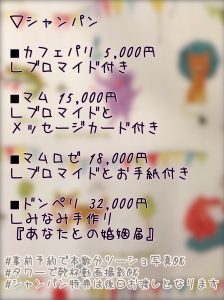 ▽シャンパン
■カフェパリ 5,000円
∟ブロマイド付き
■マム 15,000円
∟ブロマイドと
メッセージカード付き
■マムロゼ 18,000円
∟ブロマイドとお手紙付き
■ドンペリ 32,000円
∟みなみ手作り
『あなたとの婚姻届』
#事前予約で本数分ツーショ写真OK
#タワーで乾杯動画撮影OK
#シャンパン特典は後日お渡しとなります